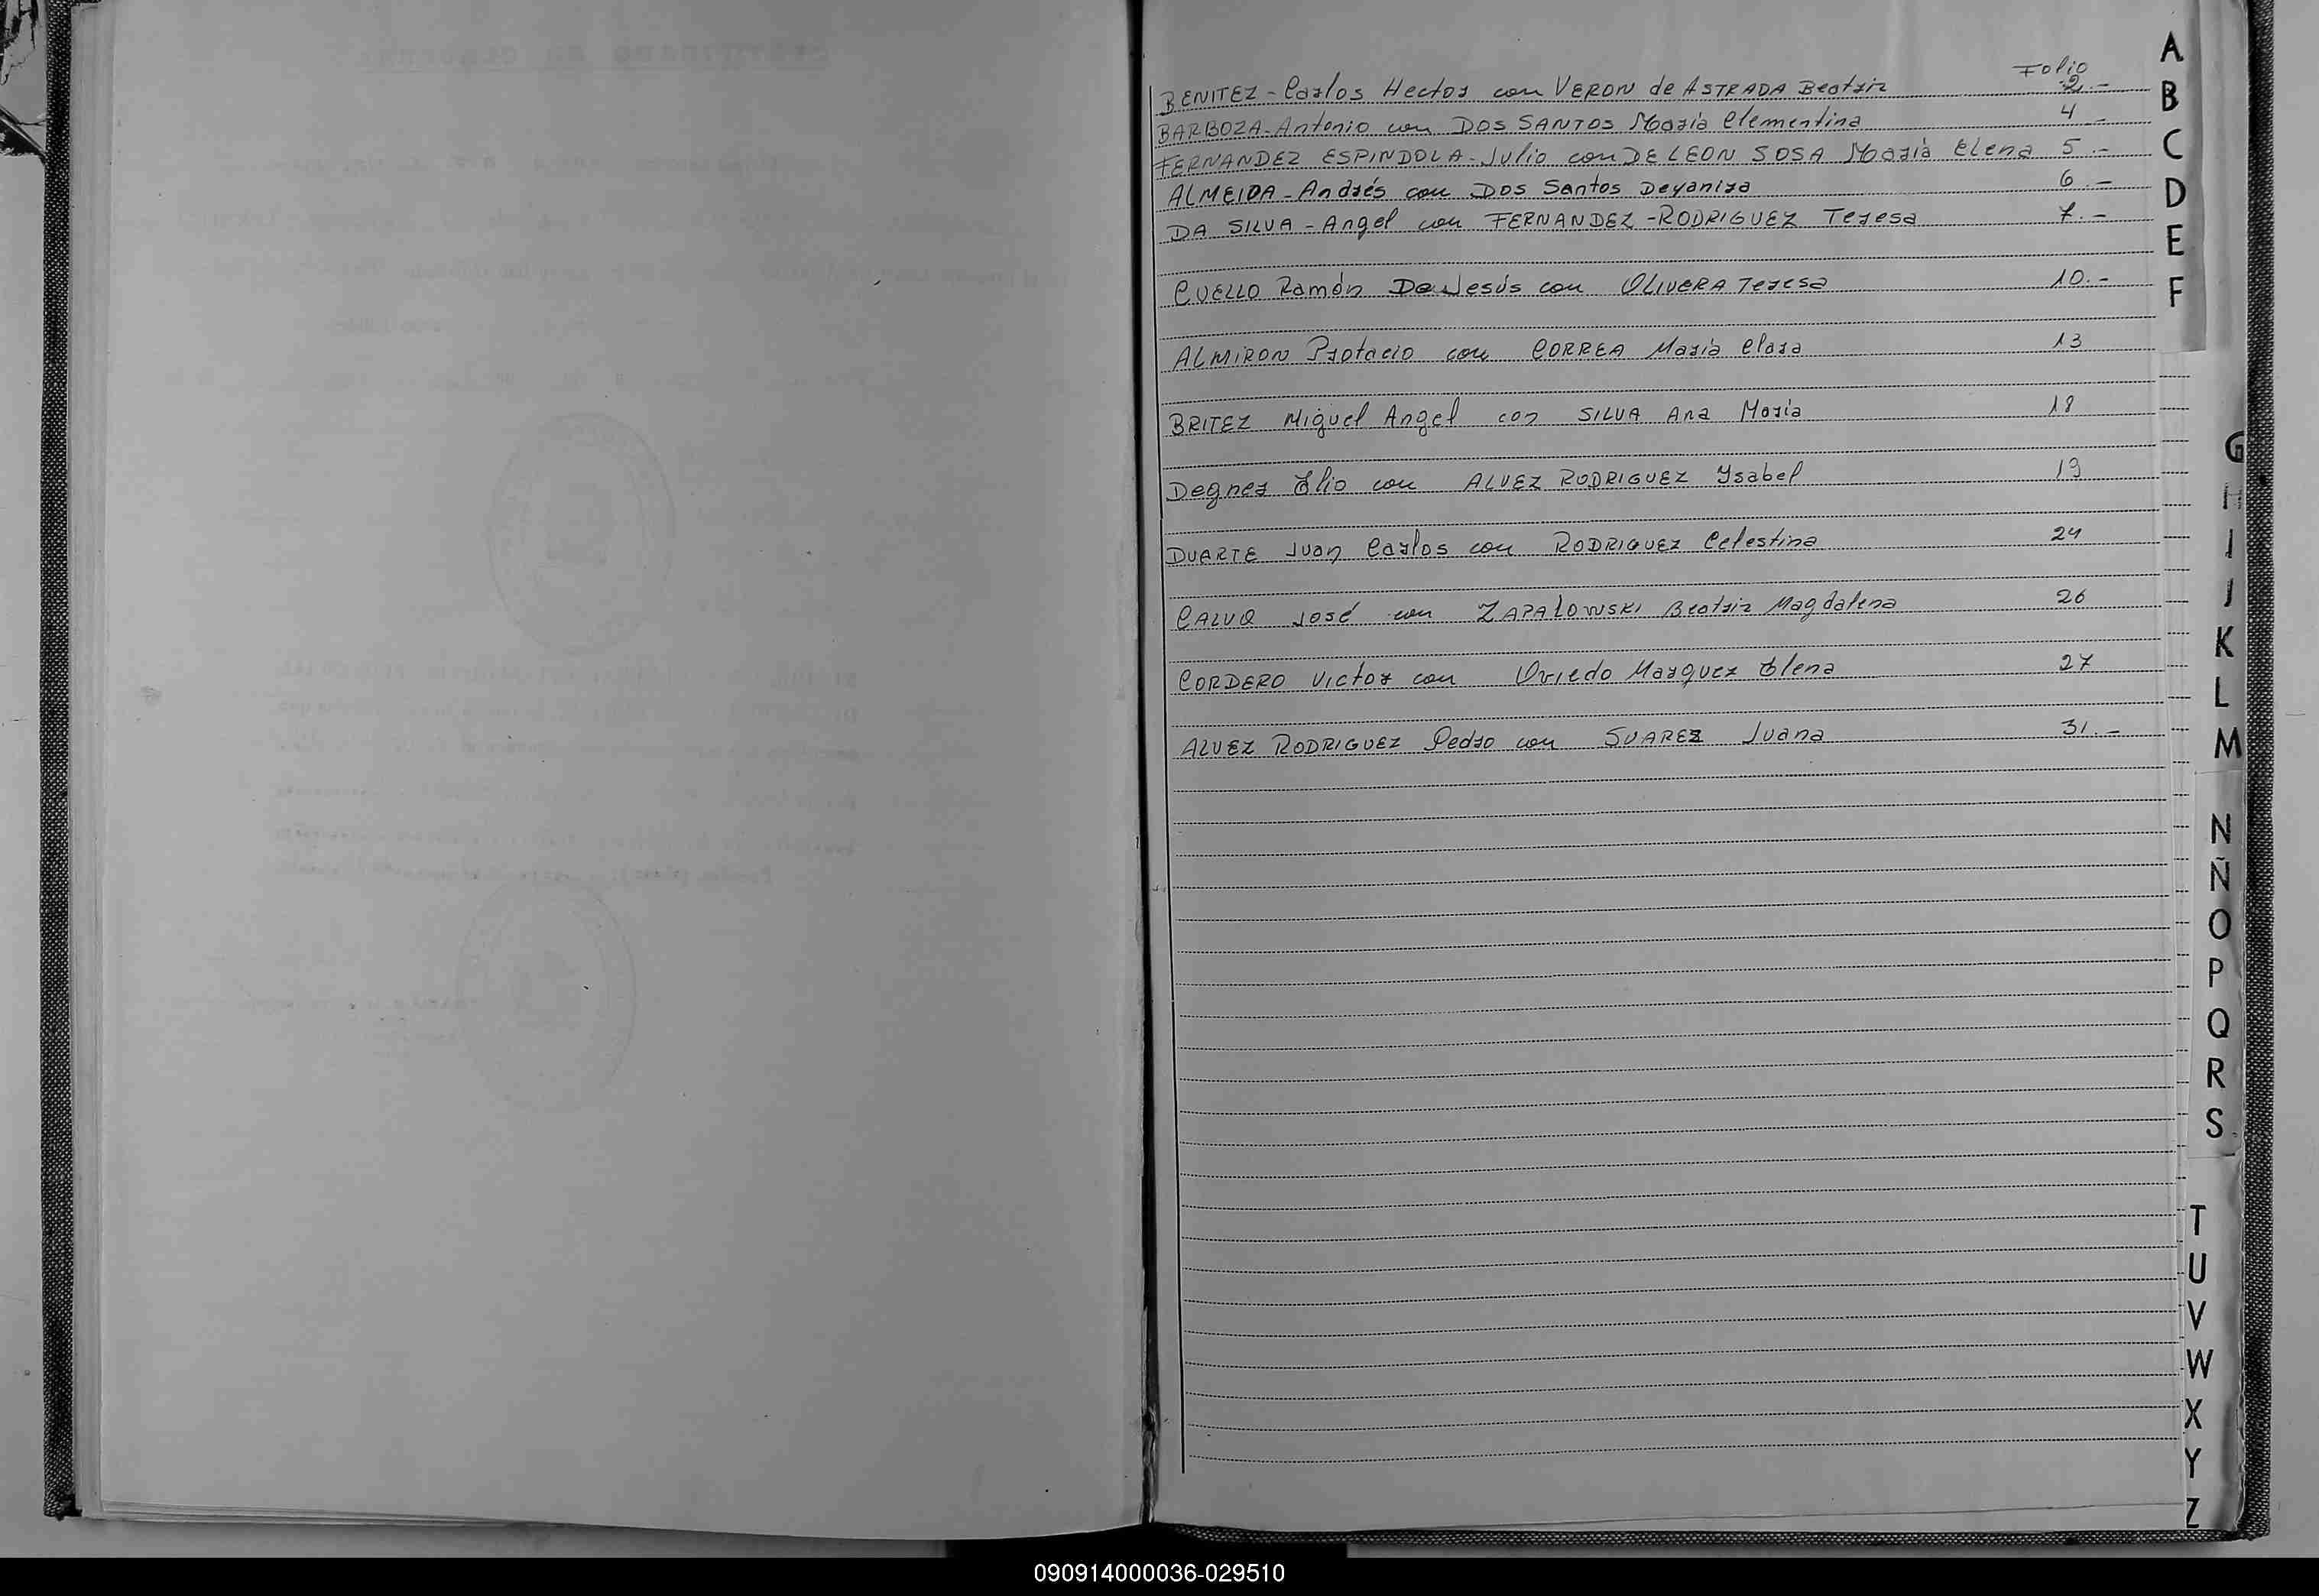 Folio
BENITEZ - Carlos Hector con VERON de ASTRADA Beatriz 2.-
BARBOZA - Antonio con DOS SANTOS María Clementina 4.-
FERNANDEZ ESPINDOLA - Julio con DE LEON SOSA María Elena 5.-
ALMEIDA - Andrés con Dos Santos Deyanira 6.-
DA SILVA - Angel con FERNANDEZ - RODRIGUEZ Teresa 7.-
CUELLO Ramón De Jesús con OLIVERA Teresa 10.-
ALMIRON Protacio con CORREA María Clara 13
BRITEZ Miguel Angel con SILVA Ana María 18
Degner Elio con ALVEZ RODRIGUEZ Ysabel 19
DUARTE Juan Carlos con RODRIGUEZ Celestina 24
CALVO José con ZAPALOWSKI Beatriz Magdalena 26
CORDERO Victor con Oviedo Marquez Elena 27
ALVEZ RODRIGUEZ Pedro con SUAREZ Juana 31.-
A
B
C
D
E
F
G
H
I
J
K
L
M
N
Ñ
O
P
Q
R
S
T
U
V
W
X
Y
Z
090914000036-029510